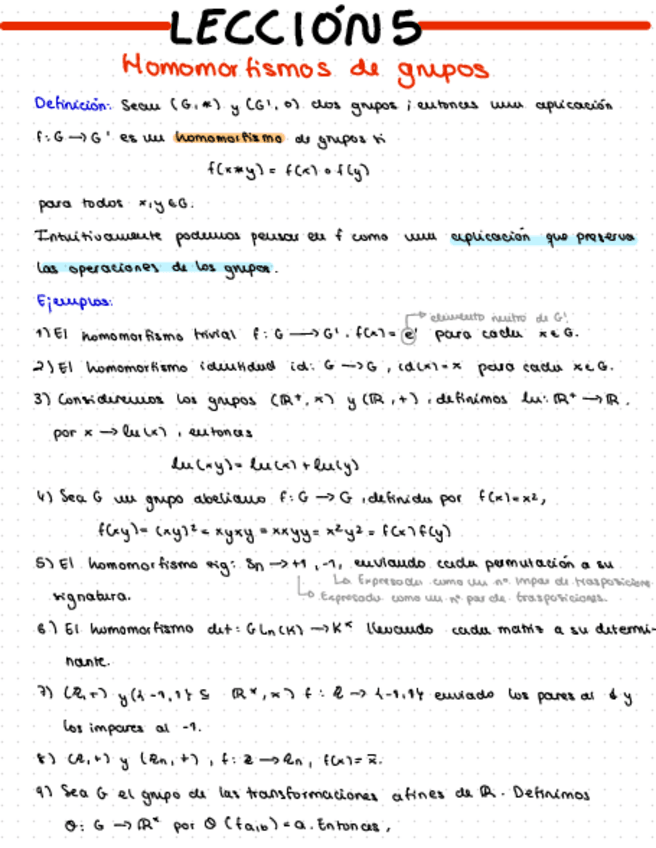 LECCIÓN 5
Homomorfismos de grupos
Definición: Sean (G,*) y (G',o) dos grupos; entonces una aplicación
f: G → G' es un homomorfismo de grupos si
f(x*y) = f(x) o f(y)
para todos x,y ∈ G.
Intuitivamente podemos pensar en f como una aplicación que preserva
las operaciones de los grupos.
Ejemplos:
elemento neutro de G'
1) El homomorfismo trivial f: G → G'. f(x) = e' para cada x ∈ G.
2) El homomorfismo identidad id: G → G, id(x) = x para cada x ∈ G.
3) Consideremos los grupos (R⁺, x) y (R, +), definimos ln: R⁺ → R,
por x → ln(x), entonces
ln(xy) = ln(x) + ln(y)
4) Sea G un grupo abeliano f: G → G, definida por f(x) = x²,
f(xy) = (xy)² = xyxy = xxyy = x²y² = f(x) f(y)
5) El homomorfismo sig: Sn → +1, -1, enviando cada permutación a su
La Expresada como un nº impar de trasposiciones
signatura.
Expresada como un nº par de trasposiciones.
6) El homomorfismo det: GLn(K) → Kˣ llevando cada matriz a su determi-
nante.
7) (Z,+) y ({-1,1} ⊆ R*, x) f: Z → {-1,1} enviado los pares al 1 y
los impares al -1.
8) (Z,+) y (Zn, +), f: Z → Zn, f(x) = x̄.
9) Sea G el grupo de las transformaciones afines de R. Definimos
Θ: G → Rˣ por Θ(fa,b) = a. Entonces,